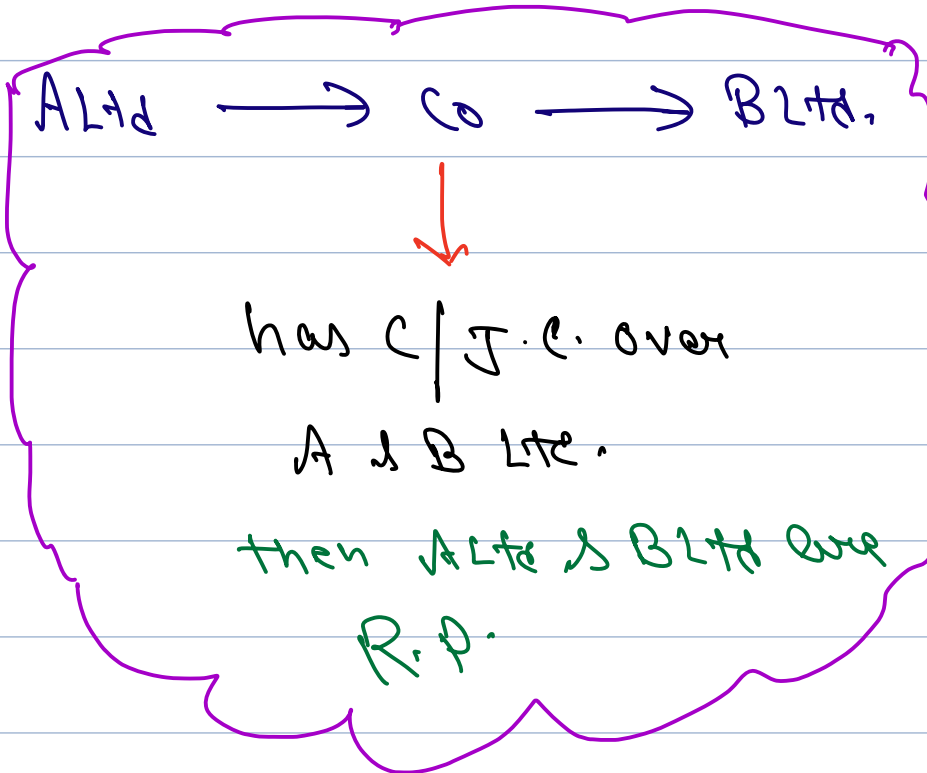 A Ltd → Co → B Ltd.
has C/J.C. over
A & B Ltd.
then A Ltd & B Ltd are
R.P.